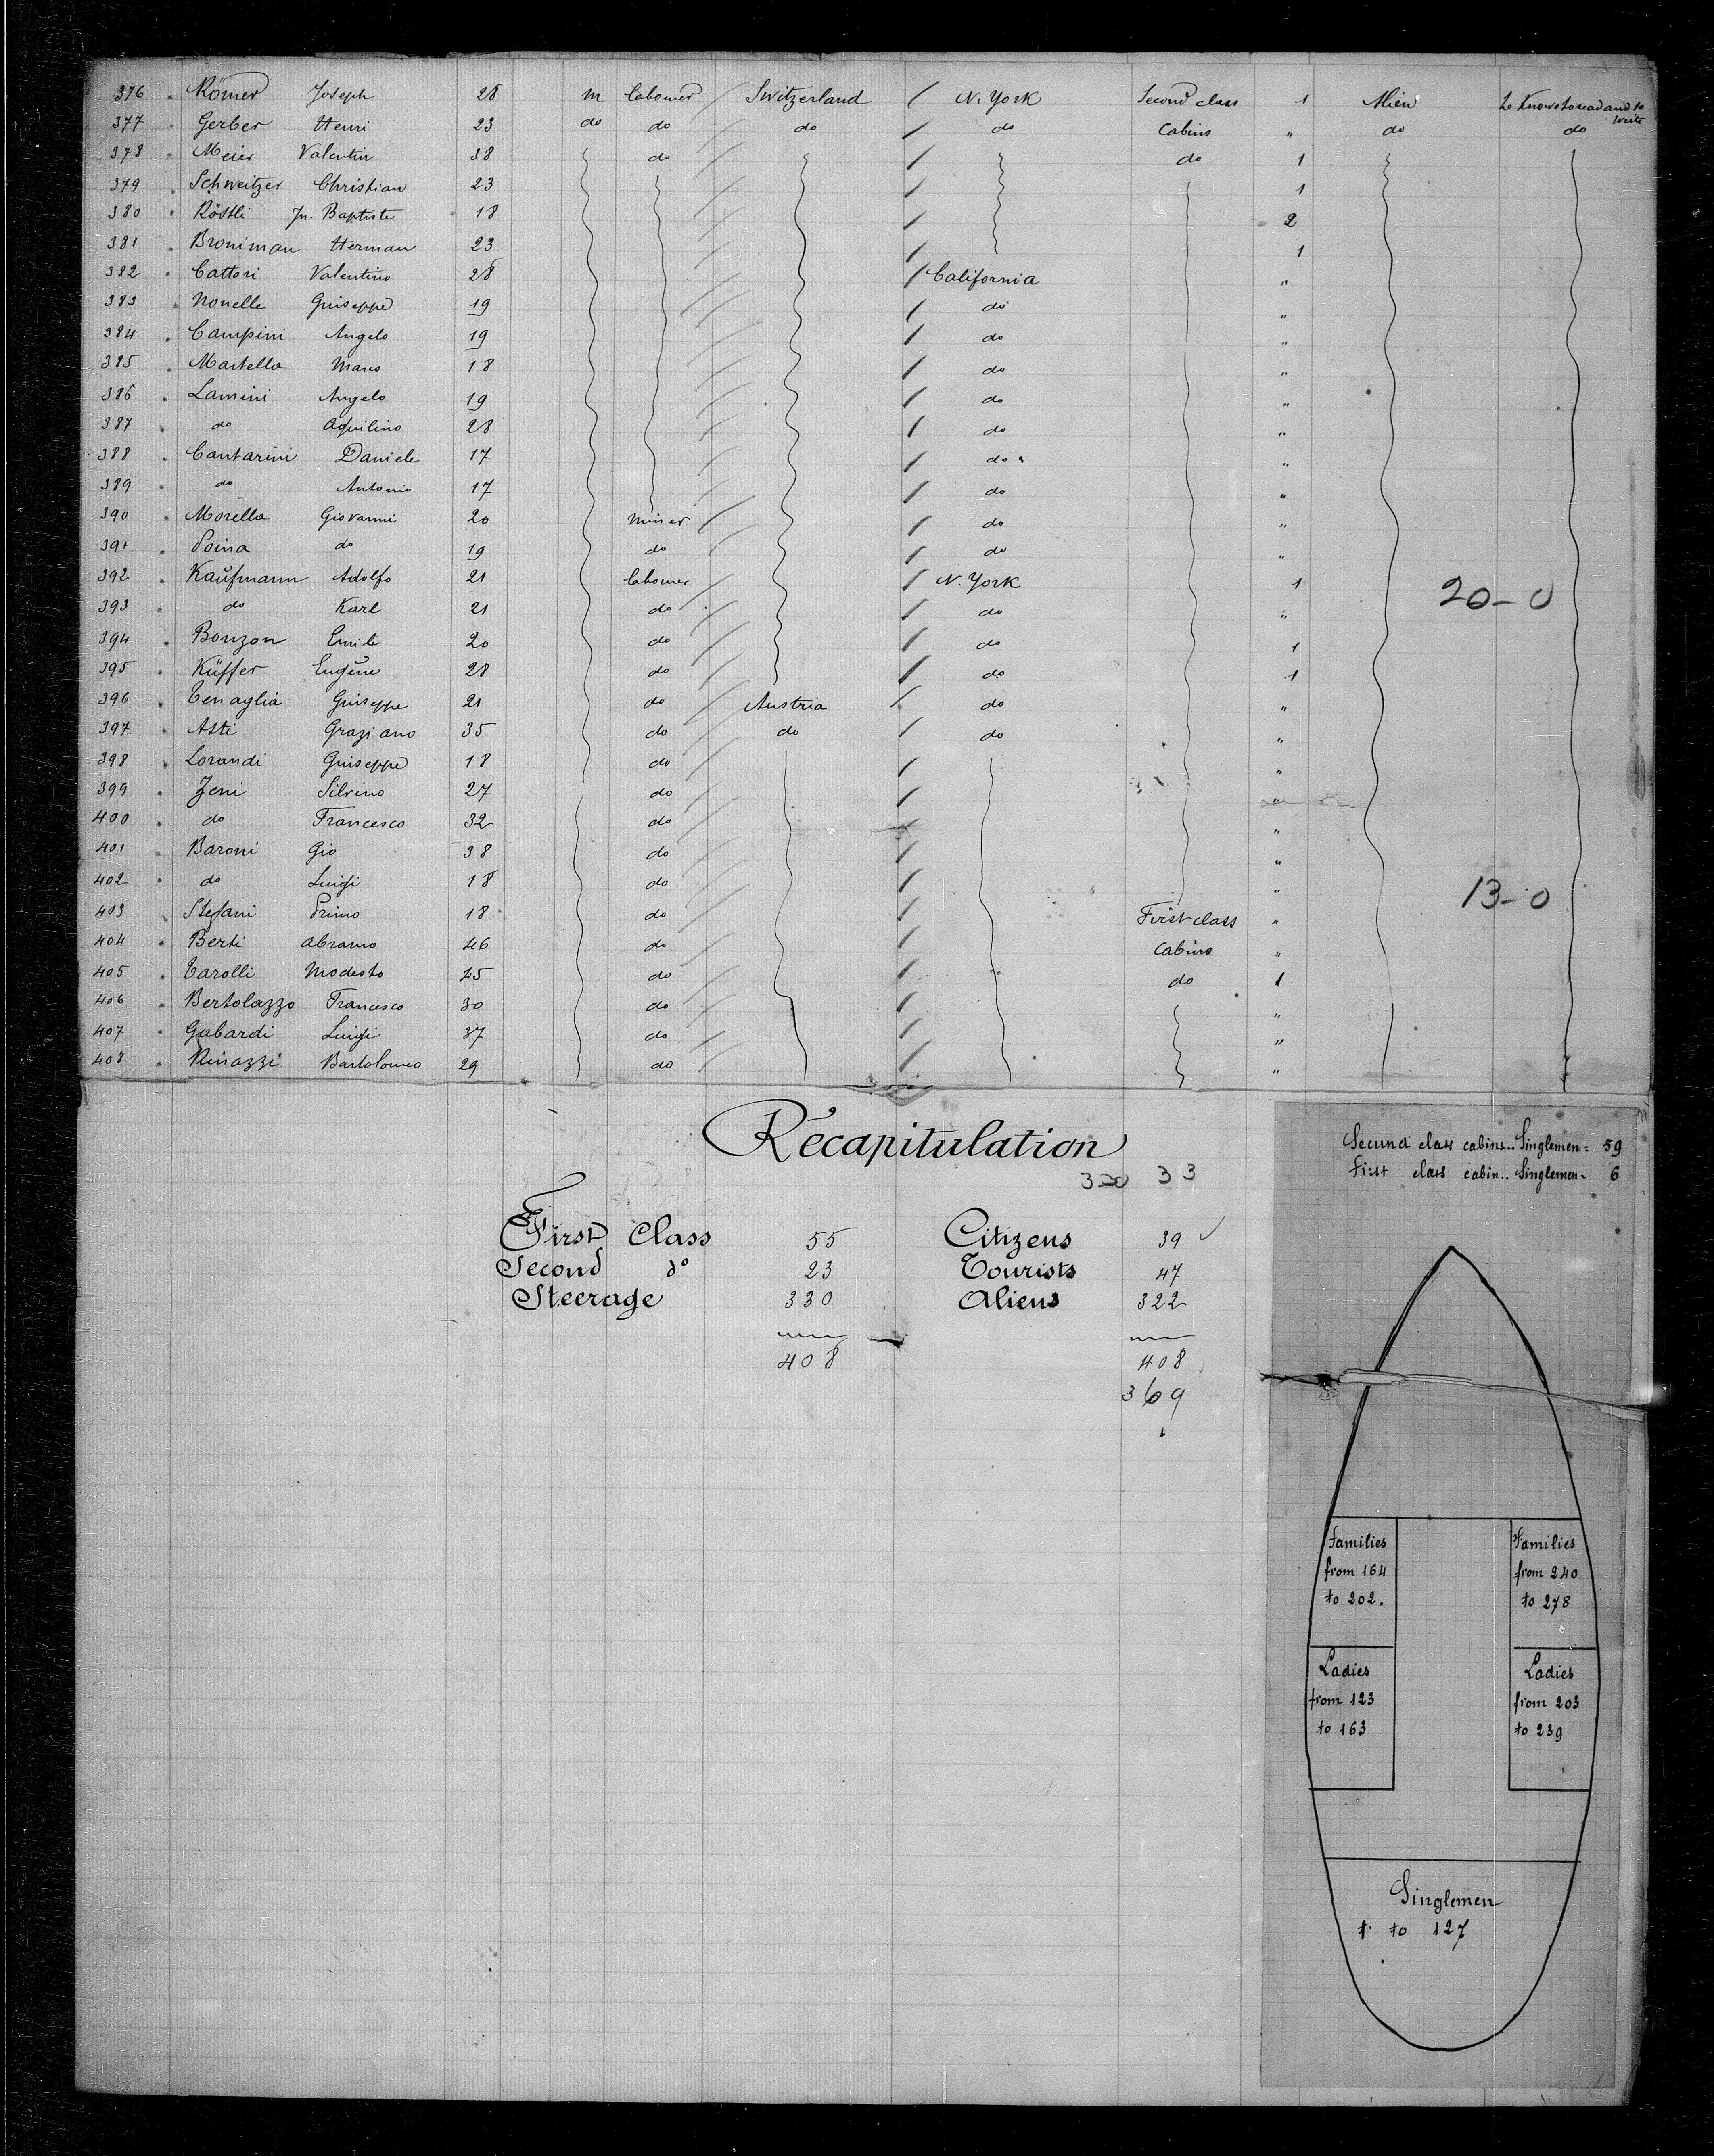 376 Römer Joseph 28 m Labourer Switzerland / N. York Second class 1 Alien He Knows to read and to write
377 Gerber Henri 23 do do do / do Cabins " do do
378 Meier Valentin 38 do / do 1
379 Schweitzer Christian 23 / 1
380 Röstli Jn. Baptiste 18 / 2
381 Broniman Herman 23 / 1
382 Cattori Valentino 28 / California "
383 Nonelle Guiseppe 19 / do "
384 Campini Angelo 19 / do "
385 Martella Marco 18 / do "
386 Lamini Angelo 19 / do "
387 do Aquilino 28 / do "
388 Cantarini Daniele 17 / do "
389 do Antonio 17 / do "
390 Morella Giovanni 20 miner / do "
391 Poina do 19 do / do "
392 Kaufmann Adolfo 21 Labourer / N. York 1
20-0
393 do Karl 21 do / do "
394 Bonzon Emile 20 do / do 1
395 Küffer Eugène 28 do / do 1
396 Tenaglia Guiseppe 21 do Austria / do "
397 Asti Graziano 35 do do / do "
398 Lorandi Guiseppe 18 do / "
399 Zeni Silvino 27 do / "
400 do Francesco 32 do / "
401 Baroni Gio 38 do / "
402 do Luigi 18 do / "
13-0
403 Stefani Primo 18 do / First class "
404 Berti Abramo 46 do / Cabins "
405 Tarolli Modesto 45 do / do 1
406 Bertolazzo Francesco 30 do / "
407 Gabardi Luigi 37 do / "
408 Rinazzi Bartolomeo 29 do / "
Recapitulation
320 33
First Class 55 Citizens 39
Second do 23 Tourists 47
Steerage 330 Aliens 322
408 408
369
Second class cabins.. Singlemen = 59
First class cabin.. Singlemen = 6
Families
from 164
to 202.
Families
from 240
to 278
Ladies
from 123
to 163
Ladies
from 203
to 239
Singlemen
1 to 127